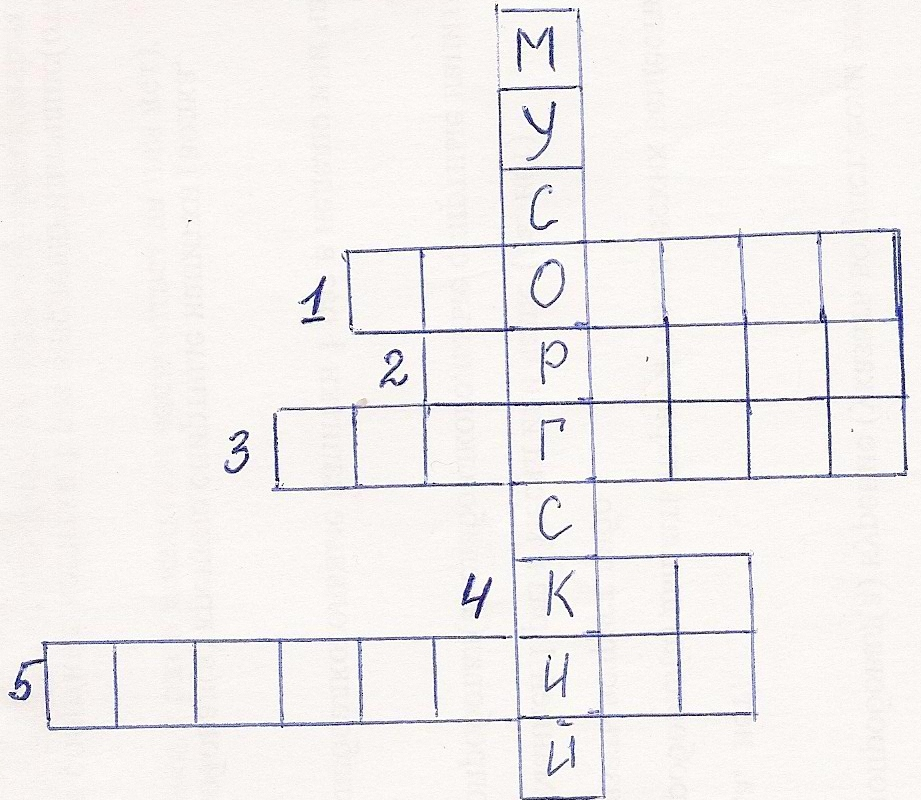 М
У
С
1 О
2 Р
3 Г
С
4 К
5 И
Й